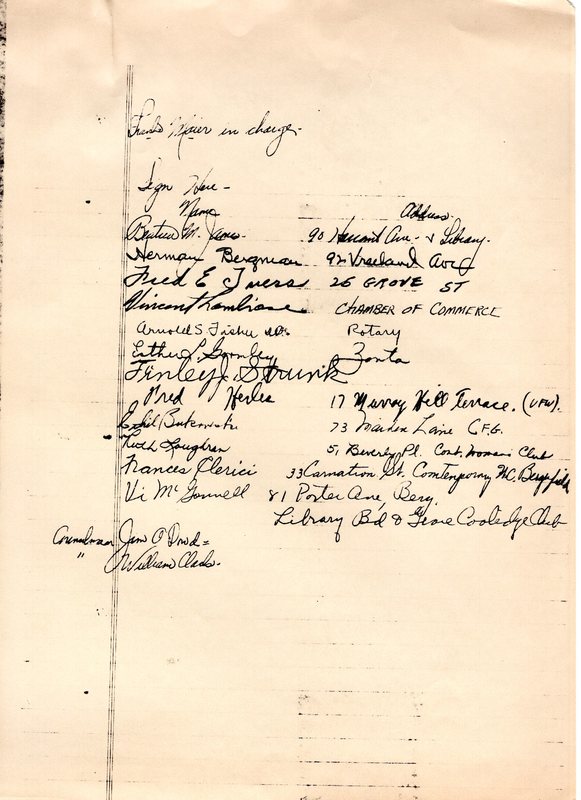 Maier in charge.
Sign Here -
Name Address.
Beatrice M. James 90 Harcourt Ave. & Library.
Herman Bergman 92 Vreeland Ave
Fred E Ivers 26 GROVE ST
Vincent Lambiase CHAMBER OF COMMERCE
Arnold S Fisher Rotary
Esther L. Gormley Zonta
Finley J. Strunk
Fred Herles 17 Murray Hill Terrace. (VFW).
73 Maiden Lane C.F.G.
Ruth Loughran 51 Beverly Pl. Cont. Womans Club
Frances Clerici 33 Carnation St. Contemporary W.C. Bergenfield
Vi McGonnell 81 Porter Ave, Berg.
Library Bd & Grace Coolidge Club
Councilman Jim O'Dowd =
" William Clark.